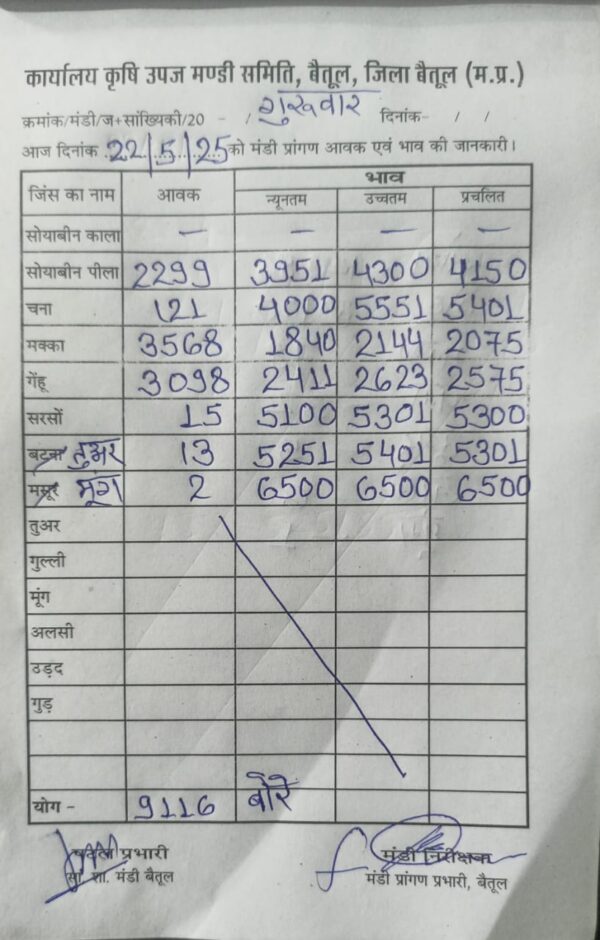 कार्यालय कृषि उपज मण्डी समिति, बैतूल, जिला बैतूल (म.प्र.)
क्रमांक/मंडी/ज+सांख्यिकी/20 - / गुरूवार दिनांक- / /
आज दिनांक 22/5/25 को मंडी प्रांगण आवक एवं भाव की जानकारी।
जिंस का नाम आवक भाव
न्यूनतम उच्चतम प्रचलित
सोयाबीन काला — — — —
सोयाबीन पीला 2299 3951 4300 4150
चना 121 4000 5551 5401
मक्का 3568 1840 2144 2075
गेंहू 3098 2411 2623 2575
सरसों 15 5100 5301 5300
बटवा तुअर 13 5251 5401 5301
मसूर मूंग 2 6500 6500 6500
तुअर
गुल्ली
मूंग
अलसी
उड़द
गुड़
योग - 9116 बोरे
प्रभारी मंडी निरीक्षक
सां. शा. मंडी बैतूल मंडी प्रांगण प्रभारी, बैतूल